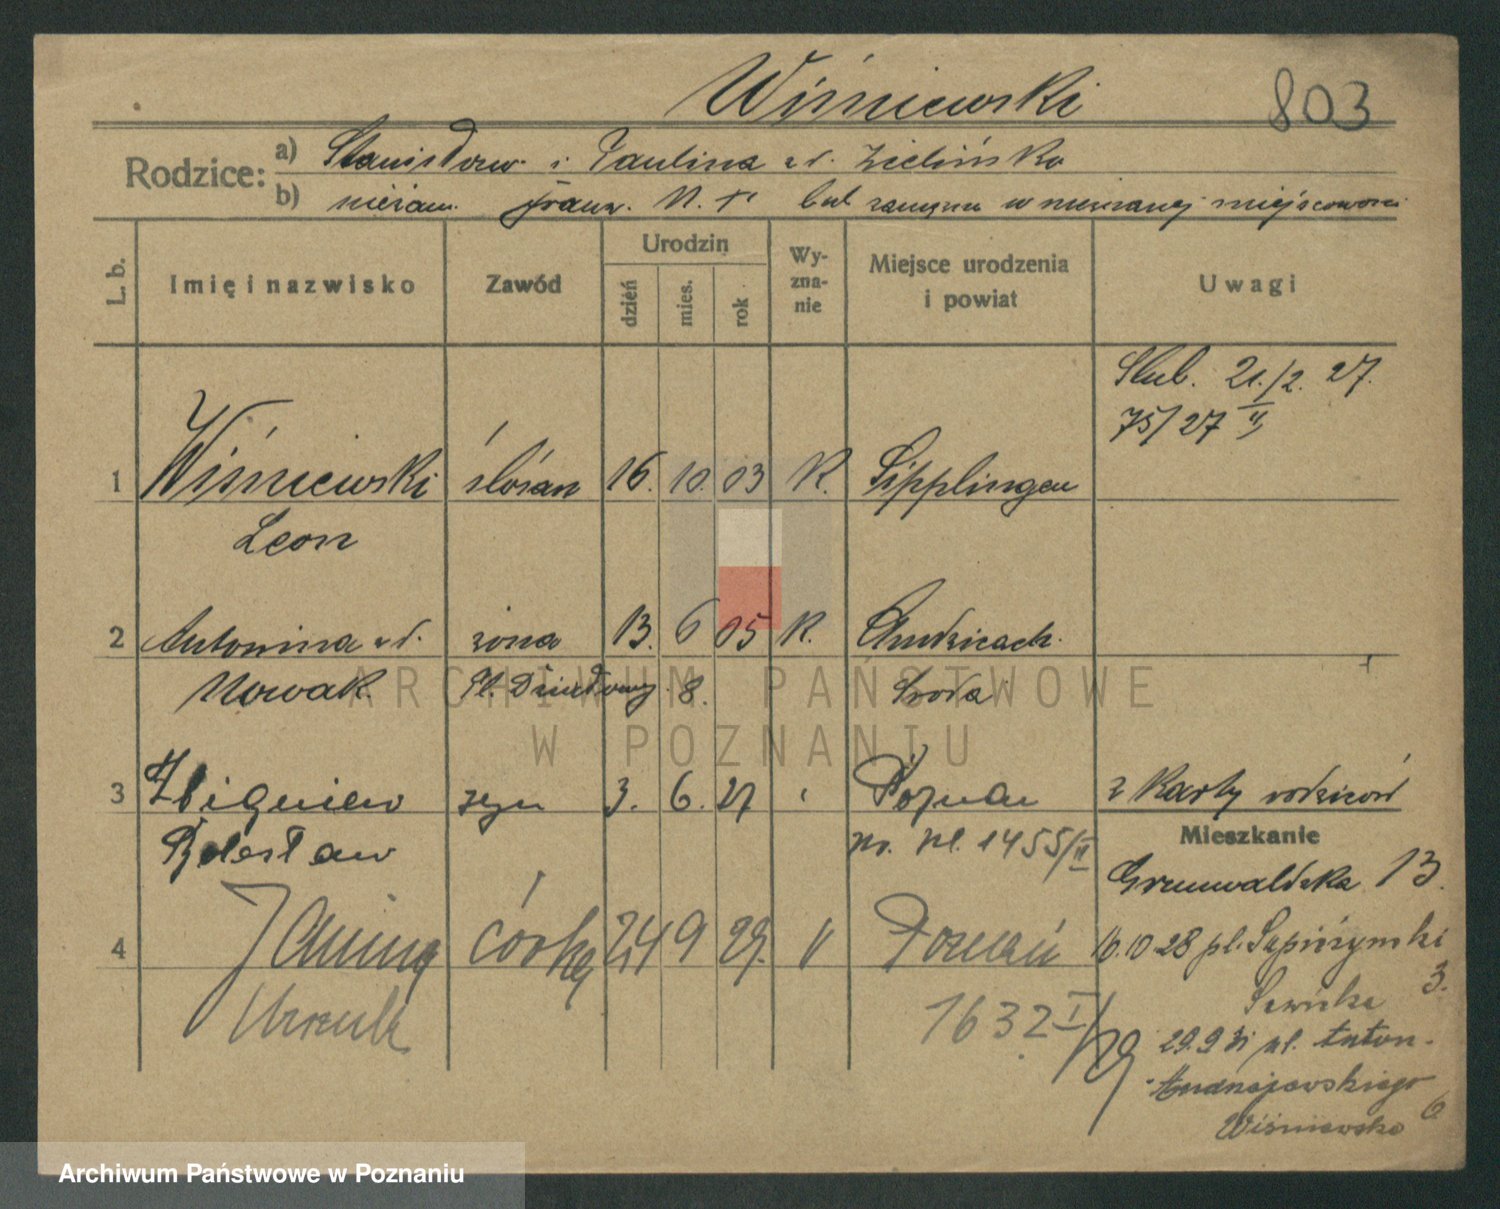 Wiśniewski 803
Rodzice: a) Stanisław i Paulina z d. Zielińska
b) nieżam. franz. N. i zamęzna w miejscowości
L. b. Imię i nazwisko Zawód Urodzin Wy-zna-nie Miejsce urodzenia i powiat Uwagi
dzień mies. rok
Ślub. 21./2. 27.
75/27 II
1 Wiśniewski ślósarz 16. 10. 03 K. Sipplingen
Leon
2 Antonina z d. żona 13. 6 05 K.
Nowak Pl. Działowy 8. Środa
3 Zbigniew syn 3. 6. 27 Poznań z Karty rodziców
Bolesław nr. 1455/II
Mieszkanie
Grunwaldzka 13.
4 Janina córka 24 9 29. Poznań 16.10.28 pl. Sapieżynski
Urszula 1632 I/29 3.
29.9 31 ul.
Wiśniewska 6
ARCHIWUM PAŃSTWOWE
W POZNANIU
Archiwum Państwowe w Poznaniu